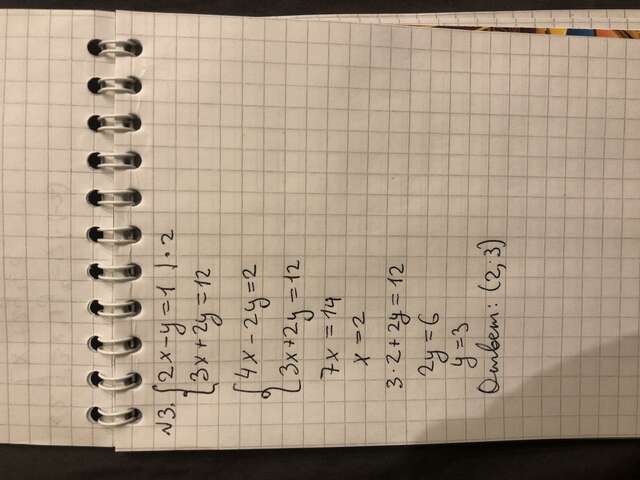 №3. { 2x - y = 1 | · 2
{ 3x + 2y = 12
{ 4x - 2y = 2
{ 3x + 2y = 12
7x = 14
x = 2
3 · 2 + 2y = 12
2y = 6
y = 3
Ответ: (2; 3)